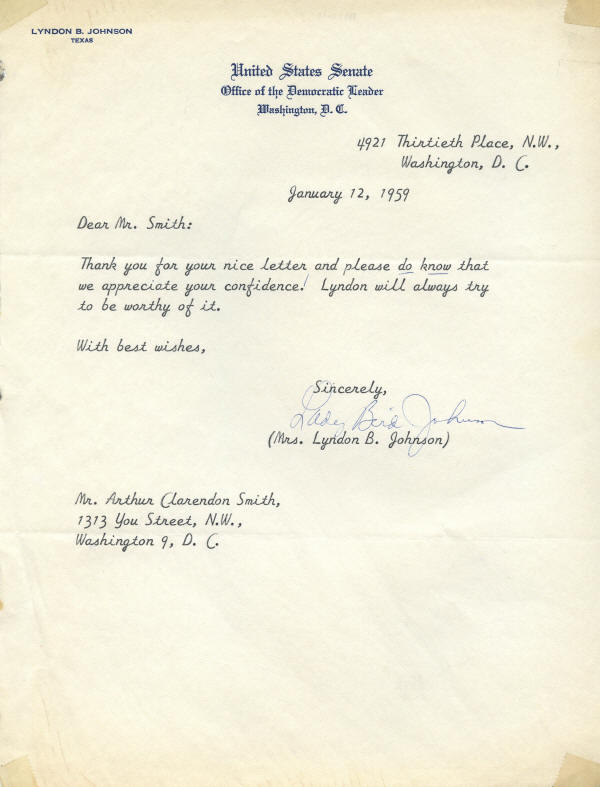 LYNDON B. JOHNSON
TEXAS
United States Senate
Office of the Democratic Leader
Washington, D. C.
4921 Thirtieth Place, N.W.,
Washington, D. C.
January 12, 1959
Dear Mr. Smith:
Thank you for your nice letter and please do know that
we appreciate your confidence! Lyndon will always try
to be worthy of it.
With best wishes,
Sincerely,
Lady Bird Johnson
(Mrs. Lyndon B. Johnson)
Mr. Arthur Clarendon Smith,
1313 You Street, N.W.,
Washington 9, D. C.